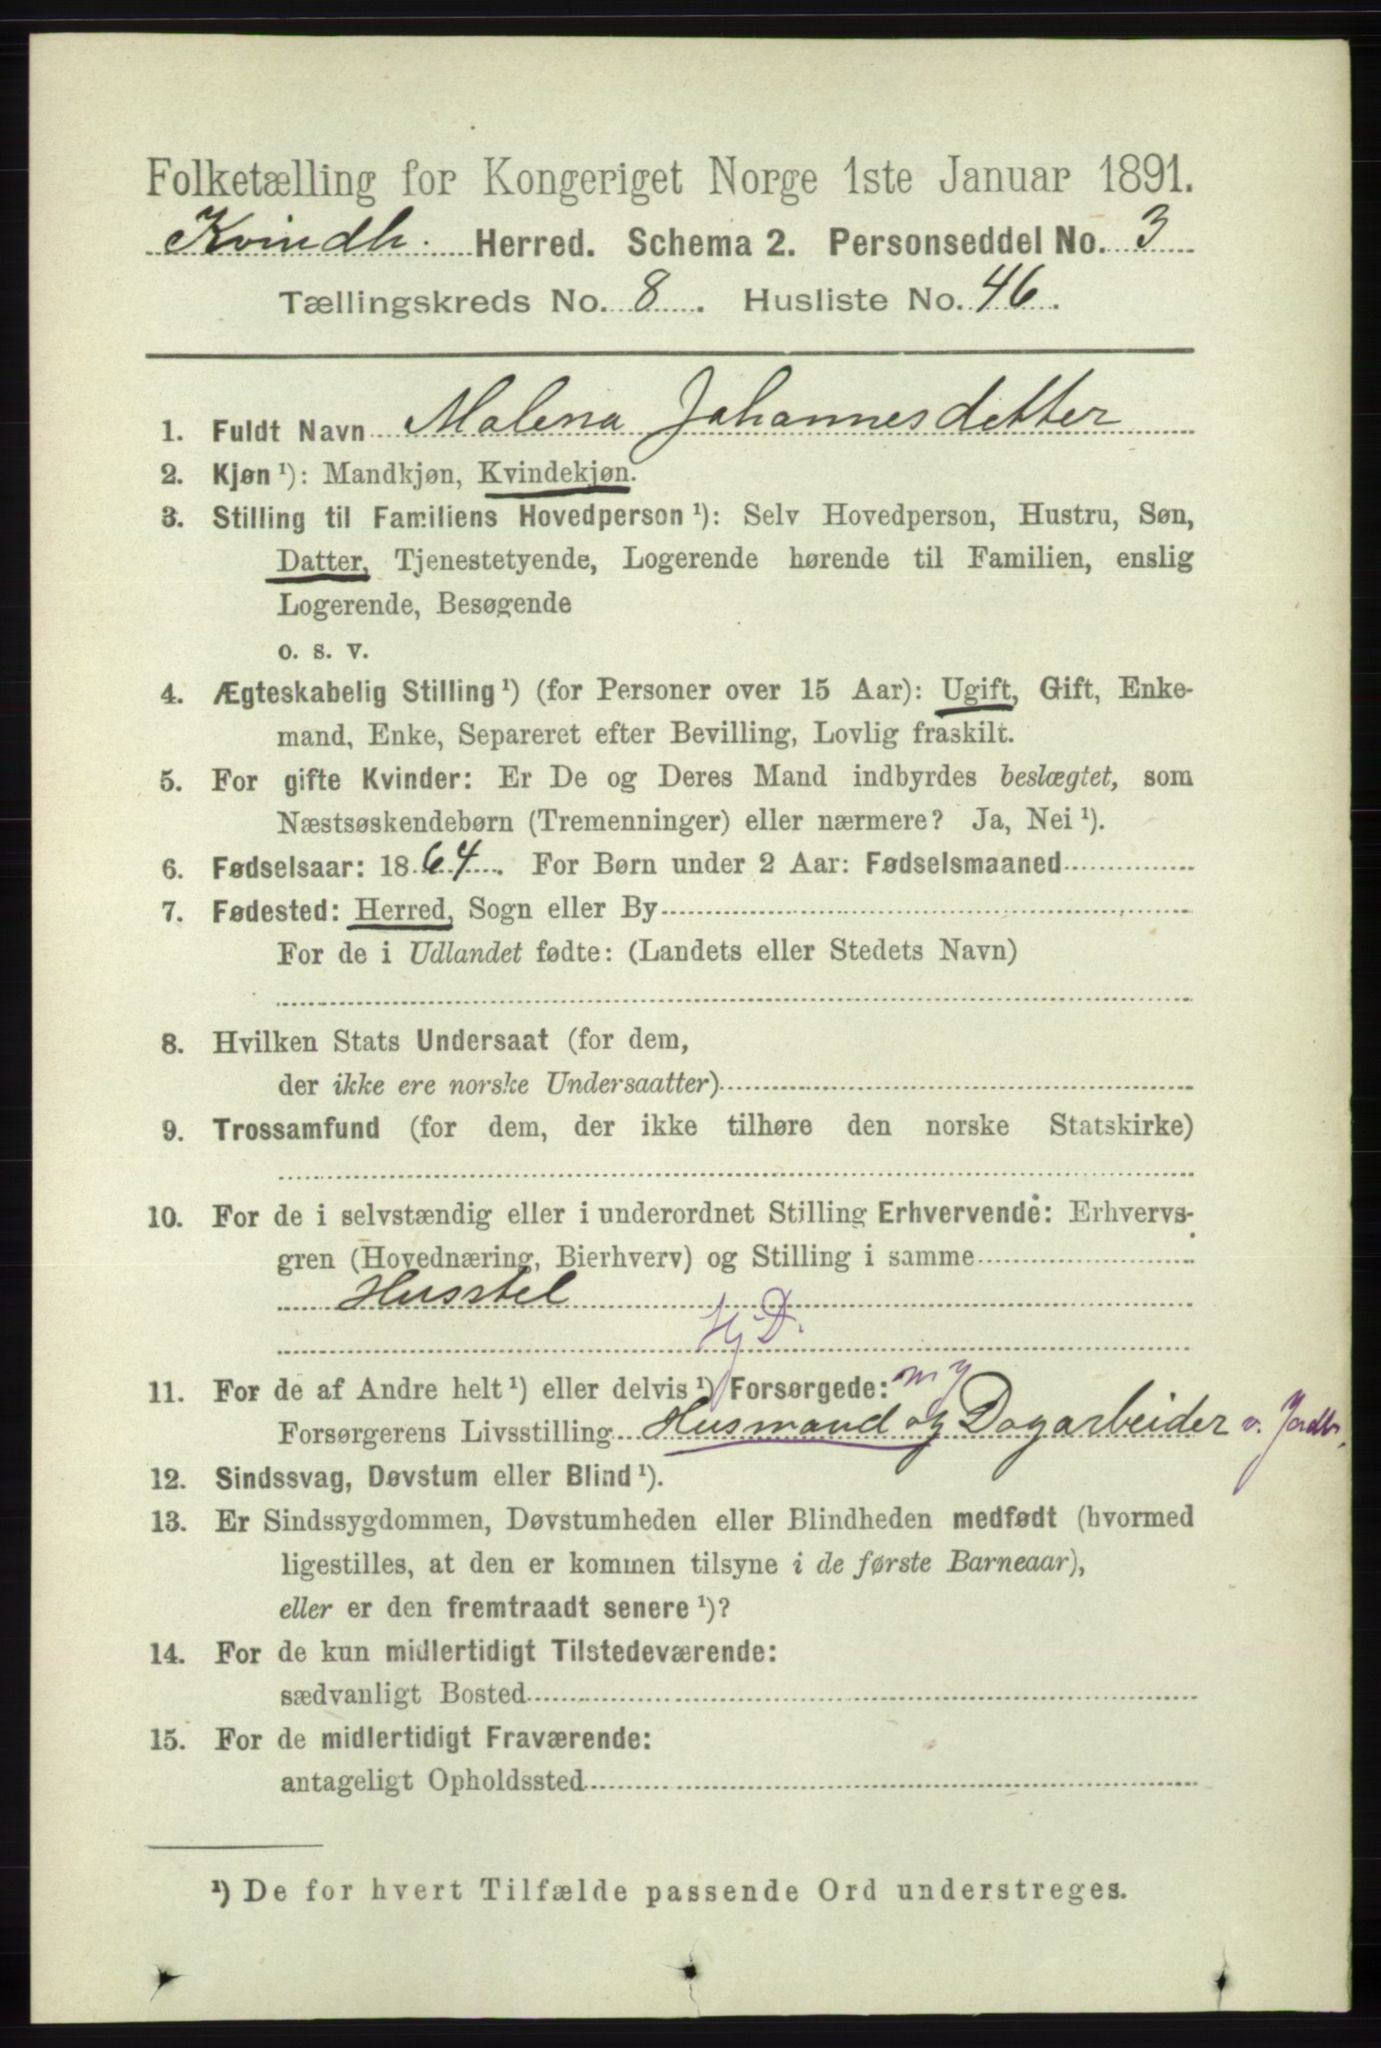 Folketælling for Kongeriget Norge 1ste Januar 1891.
Kvindh. Herred. Schema 2. Personseddel No. 3
Tællingskreds No. 8. Husliste No. 46.
1. Fuldt Navn Malena Johannesdatter
2. Kjøn ¹): Mandkjøn, Kvindekjøn.
3. Stilling til Familiens Hovedperson ¹): Selv Hovedperson, Hustru, Søn,
Datter, Tjenestetyende, Logerende hørende til Familien, enslig
Logerende, Besøgende
o. s. v.
4. Ægteskabelig Stilling ¹) (for Personer over 15 Aar): Ugift, Gift, Enke-
mand, Enke, Separeret efter Bevilling, Lovlig fraskilt.
5. For gifte Kvinder: Er De og Deres Mand indbyrdes beslægtet, som
Næstsøskendebørn (Tremenninger) eller nærmere? Ja, Nei ¹).
6. Fødselsaar: 1864. For Børn under 2 Aar: Fødselsmaaned
7. Fødested: Herred, Sogn eller By
For de i Udlandet fødte: (Landets eller Stedets Navn)
8. Hvilken Stats Undersaat (for dem,
der ikke ere norske Undersaatter)
9. Trossamfund (for dem, der ikke tilhøre den norske Statskirke)
10. For de i selvstændig eller i underordnet Stilling Erhvervende: Erhvervs-
gren (Hovednæring, Bierhverv) og Stilling i samme
Husstel
Hj D.
11. For de af Andre helt ¹) eller delvis ¹) Forsørgede: m y
Forsørgerens Livsstilling Husmand og Dagarbeider v. Jordbr.
12. Sindssvag, Døvstum eller Blind ¹).
13. Er Sindssygdommen, Døvstumheden eller Blindheden medfødt (hvormed
ligestilles, at den er kommen tilsyne i de første Barneaar),
eller er den fremtraadt senere ¹)?
14. For de kun midlertidigt Tilstedeværende:
sædvanligt Bosted
15. For de midlertidigt Fraværende:
antageligt Opholdssted
¹) De for hvert Tilfælde passende Ord understreges.